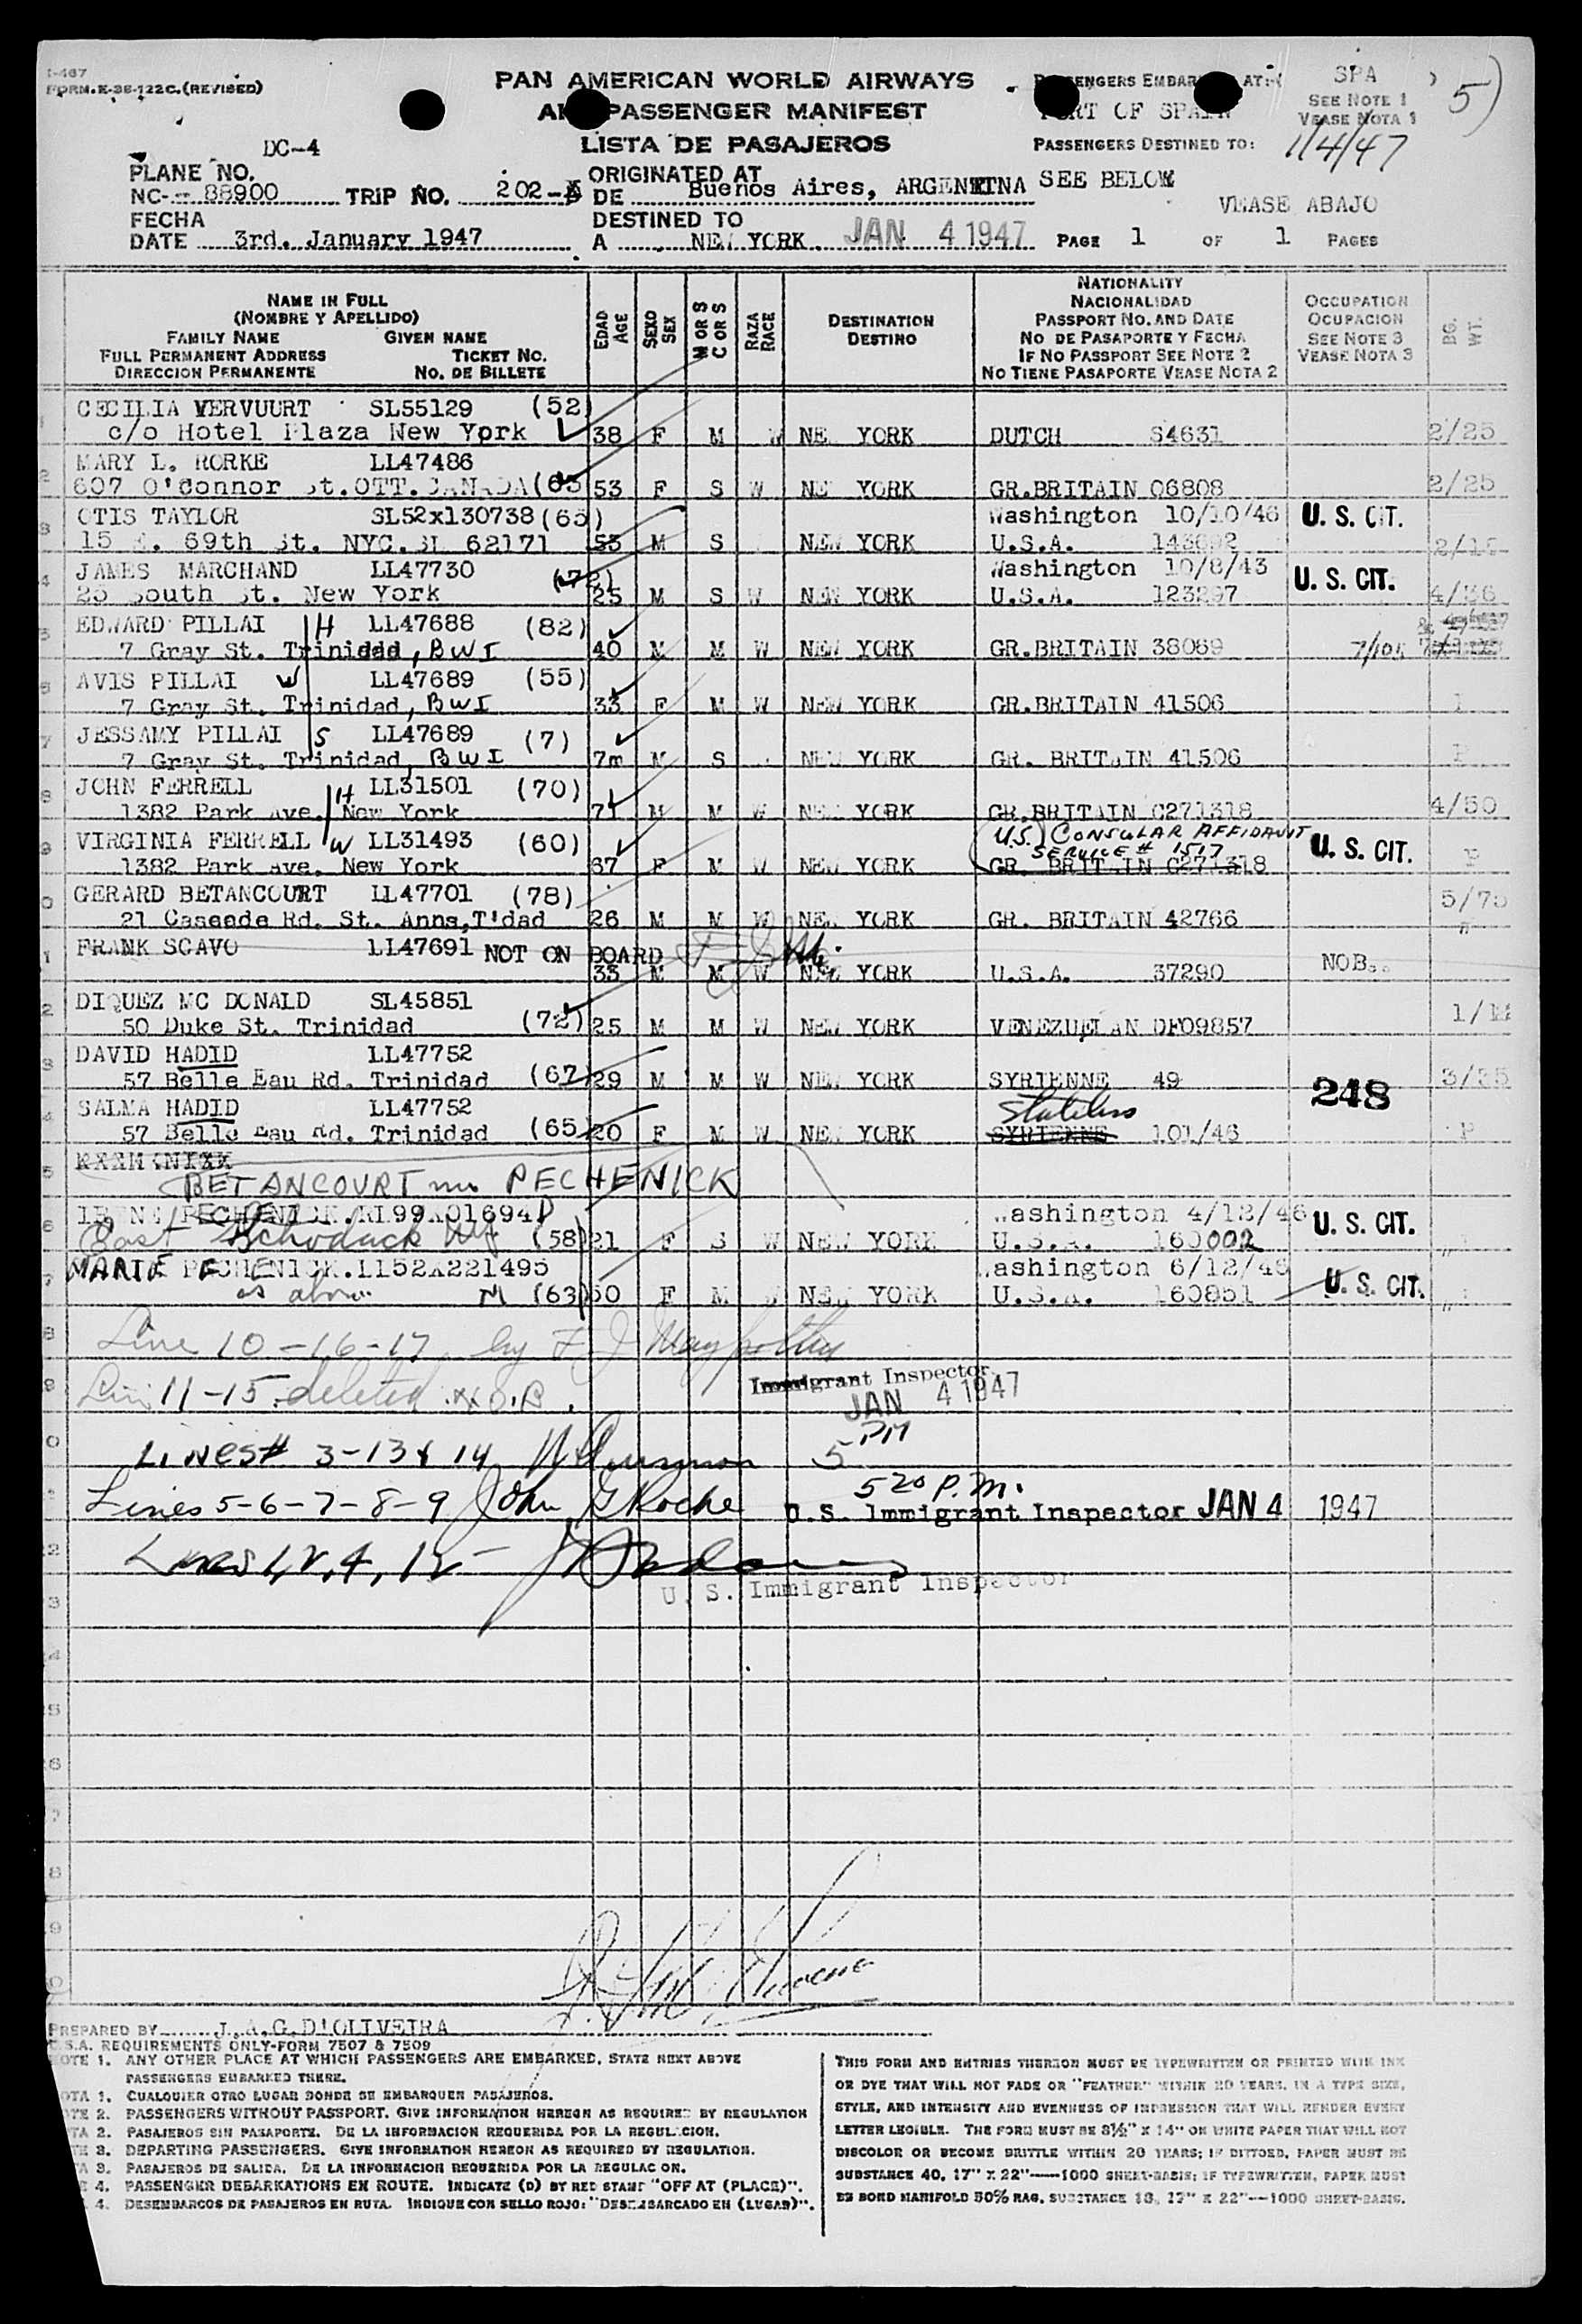 I-467
FORM. K-38-122C. (REVISED)
PAN AMERICAN WORLD AIRWAYS
PASSENGER MANIFEST
LISTA DE PASAJEROS
EMBAR AT:
SPA
SEE NOTE 1
VEASE NOTA 1
5)
PORT OF SPAIN
PASSENGERS DESTINED TO:
1/4/47
SEE BELOW
VEASE ABAJO
DC-4
PLANE NO.
NC- 88900 TRIP NO. 202-
ORIGINATED AT
DE Buenos Aires, ARGENTINA
FECHA
DATE 3rd. January 1947
DESTINED TO
A NEW YORK JAN 4 1947
PAGE 1 OF 1 PAGES
NAME IN FULL
(NOMBRE Y APELLIDO)
FAMILY NAME GIVEN NAME
FULL PERMANENT ADDRESS TICKET NO.
DIRECCION PERMANENTE NO. DE BILLETE
EDAD AGE
SEXO SEX
M OR S C OR S
RAZA RACE
DESTINATION
DESTINO
NATIONALITY
NACIONALIDAD
PASSPORT NO. AND DATE
NO DE PASAPORTE Y FECHA
IF NO PASSPORT SEE NOTE 2
NO TIENE PASAPORTE VEASE NOTA 2
OCCUPATION
OCUPACION
SEE NOTE 3
VEASE NOTA 3
BG. WT.
CECILIA VERVUURT SL55129 (52)
c/o Hotel Plaza New York 38 F M W NE YORK DUTCH S4631 2/25
MARY L. RORKE LL47486
607 O'Connor St. OTT. CANADA (65 53 F S W NE YORK GR.BRITAIN 06808 2/25
OTIS TAYLOR SL52x130738 (65) Washington 10/10/46 U. S. CIT.
15 E. 69th St. NYC. SL 62171 53 M S NEW YORK U.S.A.
JAMES MARCHAND LL47730 (72) Washington 10/8/43 U. S. CIT.
25 South St. New York 25 M S W NEW YORK U.S.A. 123297 4/36
EDWARD PILLAI H LL47688 (82)
7 Gray St. Trinidad, BWI 40 M M W NEW YORK GR.BRITAIN 38069
AVIS PILLAI W LL47689 (55)
7 Gray St. Trinidad, BWI 33 F M W NEW YORK GR.BRITAIN 41506
JESSAMY PILLAI S LL47689 (7)
7 Gray St. Trinidad, BWI 7m M S NEW YORK GR. BRITAIN 41506
JOHN FERRELL H LL31501 (70)
1382 Park Ave. New York 71 M M W NEW YORK GR.BRITAIN C271318 4/50
VIRGINIA FERRELL W LL31493 (60) U.S. CONSULAR AFFIDAVIT SERVICE # 1517 U. S. CIT.
1382 Park Ave. New York 67 F M W NEW YORK GR. BRITAIN C271318 P
GERARD BETANCOURT LL47701 (78) 5/75
21 Cascade Rd. St. Anns, T'dad 26 M M W NEW YORK GR. BRITAIN 42766
FRANK SCAVO LL47691 NOT ON BOARD
33 M M W NEW YORK U.S.A. 37290 NOB..
DIQUEZ MC DONALD SL45851
50 Duke St. Trinidad (72) 25 M M W NEW YORK VENEZUELAN DF09857
DAVID HADID LL47752
57 Belle Eau Rd. Trinidad (67) 29 M M W NEW YORK SYRIENNE 49 248
SALMA HADID LL47752 Stateless
57 Belle Eau Rd. Trinidad (65) 20 F M W NEW YORK SYRIENNE 101/46 P
BETANCOURT PECHENICK
IRENE PECHENICK Washington 4/12/46 U. S. CIT.
East Schodack NY (58) 21 F S W NEW YORK U.S.A. 160002
MARIE PECHENICK. LL52X221495 Washington 6/12/46 U. S. CIT.
as above M (63) 50 F M W NEW YORK U.S.A. 160851
Line 10-16-17 by F J
Line 11-15 deleted
Immigrant Inspector
JAN 4 1947
5 PM
Lines# 3-13 & 14
Lines 5-6-7-8-9 John G Roche
5 20 P.m.
U.S. Immigrant Inspector JAN 4 1947
Lines 1, 2, 4, 12
U. S. Immigrant Inspector
PREPARED BY J. A. G. D'OLIVEIRA
U.S.A. REQUIREMENTS ONLY-FORM 7507 & 7509
NOTE 1. ANY OTHER PLACE AT WHICH PASSENGERS ARE EMBARKED, STATE NEXT ABOVE
PASSENGERS EMBARKED THERE.
NOTA 1. CUALQUIER OTRO LUGAR DONDE SE EMBARQUEN PASAJEROS.
NOTE 2. PASSENGERS WITHOUT PASSPORT. GIVE INFORMATION HEREON AS REQUIRED BY REGULATION
NOTA 2. PASAJEROS SIN PASAPORTE. DE LA INFORMACION REQUERIDA POR LA REGULACION.
NOTE 3. DEPARTING PASSENGERS. GIVE INFORMATION HEREON AS REQUIRED BY REGULATION.
NOTA 3. PASAJEROS DE SALIDA. DE LA INFORMACION REQUERIDA POR LA REGULAC ON.
NOTE 4. PASSENGER DEBARKATIONS EN ROUTE. INDICATE (D) BY RED STAMP "OFF AT (PLACE)".
NOTA 4. DESEMBARCOS DE PASAJEROS EN RUTA. INDIQUE CON SELLO ROJO: "DESEMBARCADO EN (LUGAR)".
THIS FORM AND ENTRIES THEREON MUST BE TYPEWRITTEN OR PRINTED WITH INK
OR DYE THAT WILL NOT FADE OR "FEATHER" WITHIN 20 YEARS, IN A TYPE SIZE,
STYLE, AND INTENSITY AND EVENNESS OF IMPRESSION THAT WILL RENDER EVERY
LETTER LEGIBLE. THE FORM MUST BE 8½" X 14" ON WHITE PAPER THAT WILL NOT
DISCOLOR OR BECOME BRITTLE WITHIN 20 YEARS; IF DITTOED, PAPER MUST BE
SUBSTANCE 40, 17" X 22"-----1000 SHEET-BASIS; IF TYPEWRITTEN, PAPER MUST
BE BOND MANIFOLD 50% RAG, SUBSTANCE 18, 17" X 22"---1000 SHEET-BASIS.